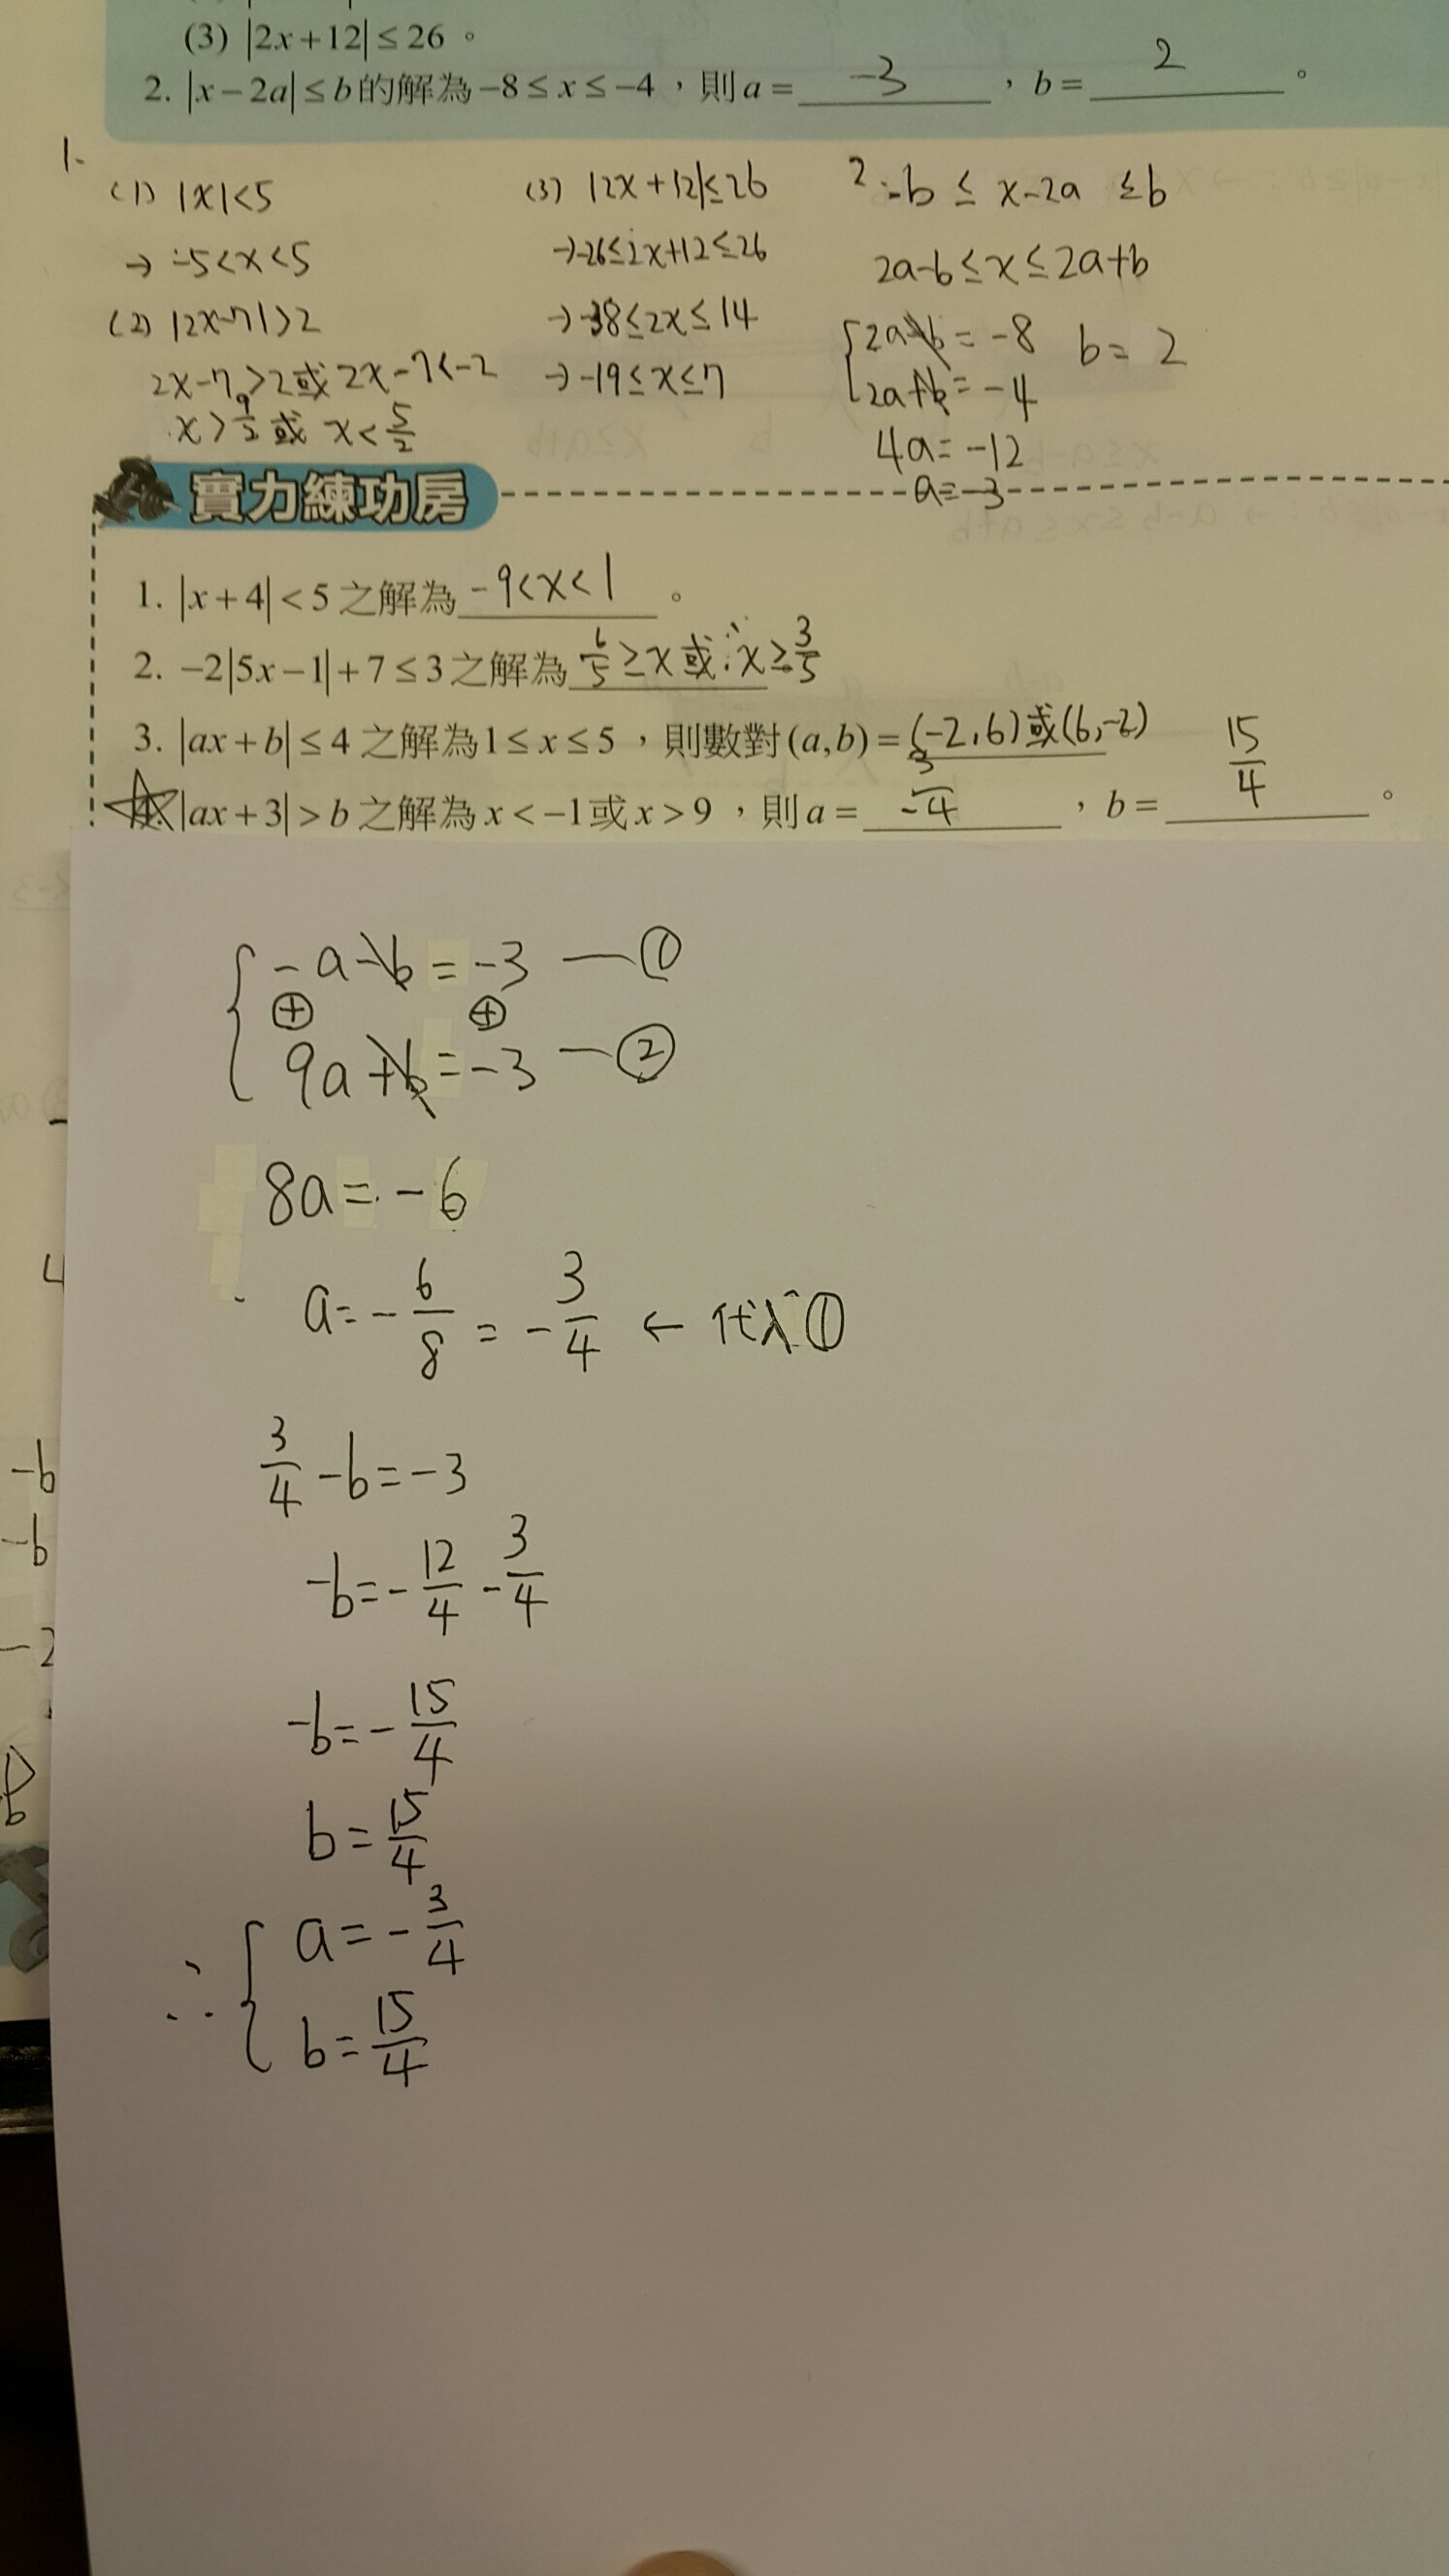 (3) |2x+12| ≤ 26。
2. |x-2a| ≤ b的解為-8 ≤ x ≤ -4，則a= -3 ，b= 2 。
1.
(1) |x|<5
→ -5<x<5
(2) |2x-7|>2
2x-7>2或2x-7<-2
x>9/2 或 x<5/2
(3) |2x+12|≤26
→-26≤2x+12≤26
→-38≤2x≤14
→-19≤x≤7
2. -b ≤ x-2a ≤b
2a-b≤x≤2a+b
{2a-b=-8 b=2
2a+b=-4
4a=-12
a=-3
實力練功房
1. |x+4|<5之解為 -9<x<1 。
2. -2|5x-1|+7≤3之解為 6/5≥x或x≥3/5
3. |ax+b|≤4之解為1≤x≤5，則數對(a,b)= (-2,6)或(6,-2)
|ax+3|>b之解為x<-1或x>9，則a= -3/4 ，b= 15/4 。
{-a-b=-3 —①
⊕ ⊕
9a+b=-3 —②
8a=-6
a=-6/8=-3/4 ← 代入①
3/4-b=-3
-b=-12/4-3/4
-b=-15/4
b=15/4
∴{a=-3/4
b=15/4
-b
-b
-2